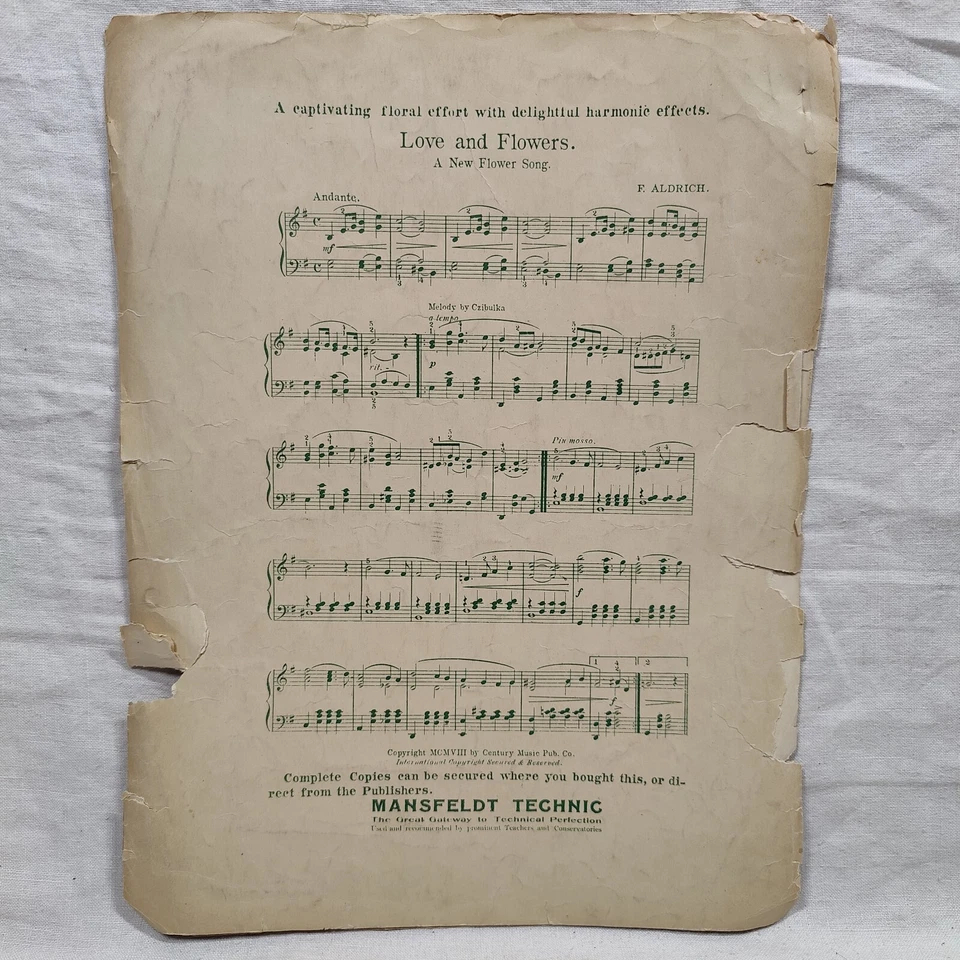 A captivating floral effort with delightful harmonic effects.
Love and Flowers.
A New Flower Song.
F. ALDRICH.
Andante.
mf
Melody by Czibulka
a tempo
rit. -
p
Piu mosso.
mf
f
1 2
f
Copyright MCMVIII by Century Music Pub. Co.
International Copyright Secured & Reserved.
Complete Copies can be secured where you bought this, or di-
rect from the Publishers.
MANSFELDT TECHNIC
The Great Gateway to Technical Perfection
Used and recommended by prominent Teachers and Conservatories